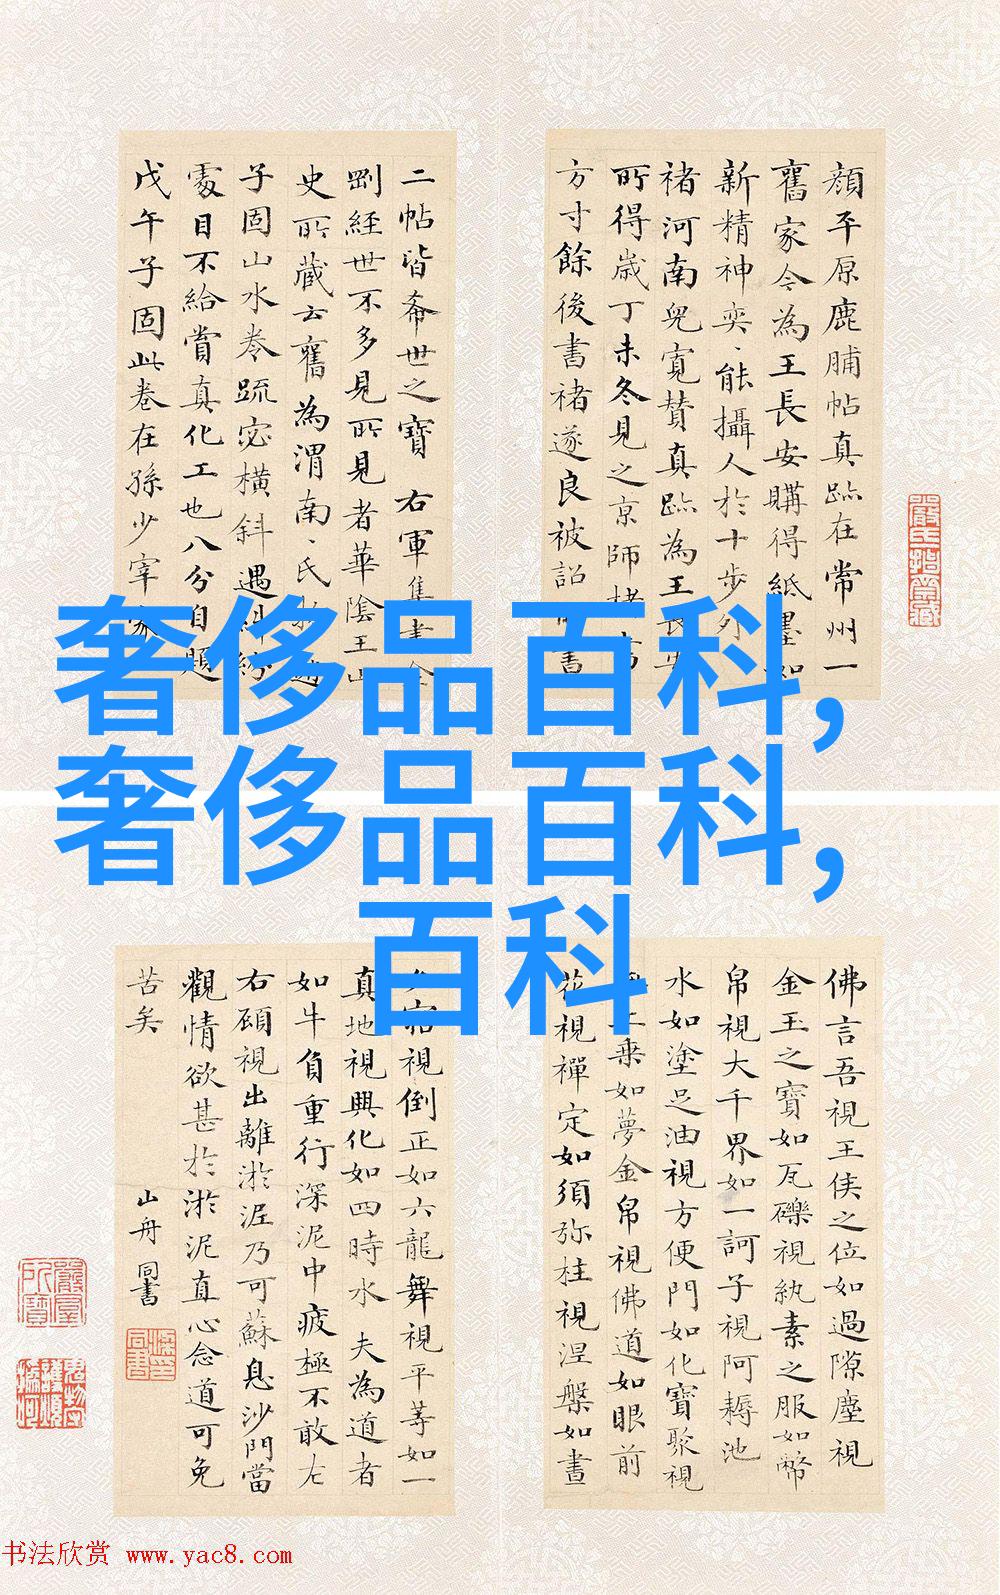 顔平原鹿脯帖真跡在常州一
舊家今為王長安購得紙墨如
新精神奕〻能攝人於十步外
褚河南兒寬贊真跡為王長安
所得歲丁未冬見之京師
方寸餘後書褚遂良被詔
書
二帖皆希世之寶右軍集書金
剛經世不多見所見者華陰王山
史所藏云舊為渭南〻氏
子固山水卷疏密橫斜遇糾紛
處目不給賞真化工也八分自題
戊午子固此卷在孫少宰家
奢侈品百科,
奢侈品百科,
百科
佛言吾視王侯之位如過隙塵視
金玉之寶如瓦礫視紈素之服如幣
帛視大千界如一訶子視阿耨池
水如塗足油視方便門如化寶聚視
上乗如夢金帛視佛道如眼前
花視禪定如須弥柱視涅槃如晝
夕寤視倒正如六龍舞視平等如一
真地視興化如四時水 夫為道者
如牛負重行深泥中疲極不敢左
右顧視出離淤泥乃可蘇息沙門當
觀情欲甚於淤泥直心念道可免
苦矣 山舟同書
书法欣赏 www.yac8.com